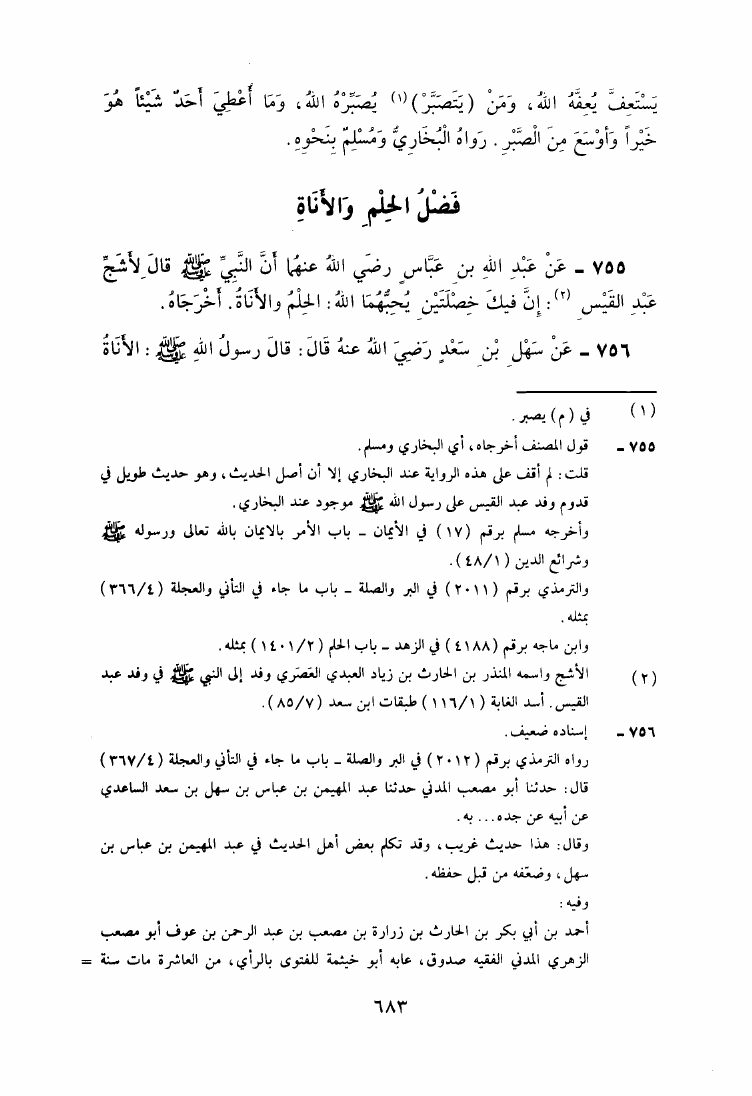 يَسْتَعِفَّ يُعِفَّهُ اللهُ، وَمَنْ (يَتَصَبَّرْ)(١) يُصَبِّرْهُ اللهُ، وَمَا أُعْطِيَ أَحَدٌ شَيْئاً هُوَ
خَيْراً وَأَوْسَعَ مِنَ الْصَّبْرِ. رَواهُ الْبُخَارِيُّ وَمُسْلِمٌ بِنَحْوِهِ.
فَضْلُ الحِلْمِ وَالأَنَاةِ
٧٥٥ ـ عَنْ عَبْدِ اللهِ بنِ عَبَّاسٍ رضي اللهُ عنهُما أَنَّ النَّبِيَّ ﷺ قالَ لِأَشَجِّ
عَبْدِ القَيْسِ (٢): إِنَّ فيكَ خِصْلَتَيْنِ يُحِبُّهُمَا اللهُ: الحِلْمُ والأَنَاةُ. أَخْرَجَاهُ.
٧٥٦ ـ عَنْ سَهْلِ بْنِ سَعْدٍ رَضِيَ اللهُ عنهُ قَالَ: قالَ رسولُ اللهِ ﷺ: الأَنَاةُ
(١) في (م) يصبر.
٧٥٥ ـ قول المصنف أخرجاه، أي البخاري ومسلم.
قلت: لم أقف على هذه الرواية عند البخاري إلا أن أصل الحديث، وهو حديث طويل في
قدوم وفد عبد القيس على رسول الله ﷺ موجود عند البخاري.
وأخرجه مسلم برقم (١٧) في الأيمان ـ باب الأمر بالايمان بالله تعالى ورسوله ﷺ
وشرائع الدين (٤٨/١).
والترمذي برقم (٢٠١١) في البر والصلة ـ باب ما جاء في التأني والعجلة (٣٦٦/٤)
بمثله.
وابن ماجه برقم (٤١٨٨) في الزهد ـ باب الحلم (١٤٠١/٢) بمثله.
(٢) الأشج واسمه المنذر بن الحارث بن زياد العبدي العَصَري وفد إلى النبي ﷺ في وفد عبد
القيس. أسد الغابة (١١٦/١) طبقات ابن سعد (٨٥/٧).
٧٥٦ ـ إسناده ضعيف.
رواه الترمذي برقم (٢٠١٢) في البر والصلة ـ باب ما جاء في التأني والعجلة (٣٦٧/٤)
قال: حدثنا أبو مصعب المدني حدثنا عبد المهيمن بن عباس بن سهل بن سعد الساعدي
عن أبيه عن جده... به.
وقال: هذا حديث غريب، وقد تكلم بعض أهل الحديث في عبد المهيمن بن عباس بن
سهل، وضعّفه من قبل حفظه.
وفيه:
أحمد بن أبي بكر بن الحارث بن زرارة بن مصعب بن عبد الرحمن بن عوف أبو مصعب
الزهري المدني الفقيه صدوق، عابه أبو خيثمة للفتوى بالرأي، من العاشرة مات سنة =
٦٨٣